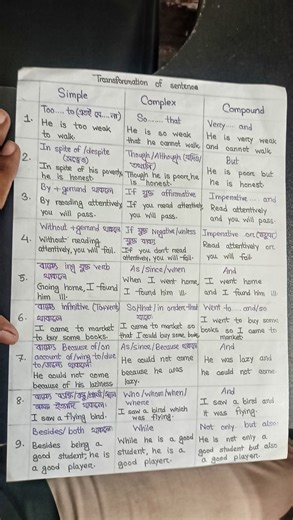 Transformation of sentence
Simple
Complex
Compound
1.
Too ... to (
He is too weak
to walk.
So ....... that
He is so weak
that he cannot walk.
Verry... and
He is verry weak
and cannot walk.
2.
In spite of /despite
In spite of his poverty,
he is honest.
Though /Although
Though he is poor, he
is honest.
But
He is poor but
he is honest
3.
By + gerund থাকলে
By reading attentively,
you will pass.
If যুক্ত affirmative
If you read attentively
you will pass.
Imperative... and
Read attentively
and you will pass.
4.
Without +gerund থাকলে
Without reading
attentively, you will fail.
If যুক্ত Negative/unless
যুক্ত বাক্য
If you don't read
attentively, you will fail.
Imperative or
Read attentively or
you will fail
5.
বাক্যে ing যুক্ত verb
থাকলে
Going home, I found
him ill.
As/since/when
When I went home,
I found him ill
And
I went home
and I found him ill
6.
বাক্যে Infinitive (To+verb)
থাকলে
I came to market
to buy some books.
So that / in order that
I came to market so
that I could buy some book
Went to.... and/so
I went to buy some
books so I came to
market
7.
বাক্যে Because of/on
account of/wing to/due
to থাকলে
He could not come
because of his laziness
As/since/Because থাকলে
He could not come
because he was
lazy.
And
He was lazy and
he could not come.
8.
I saw a flying bird.
Who/whom/when/
where
I saw a bird which
was flying.
And
I saw a bird and
it was flying.
9.
Besides/ both থাকলে
Besides being a
good student, he is
a good player.
While
While he is a good
student, he is a
good player.
Not only.. but also
He is not only a
good student but also
a good player.